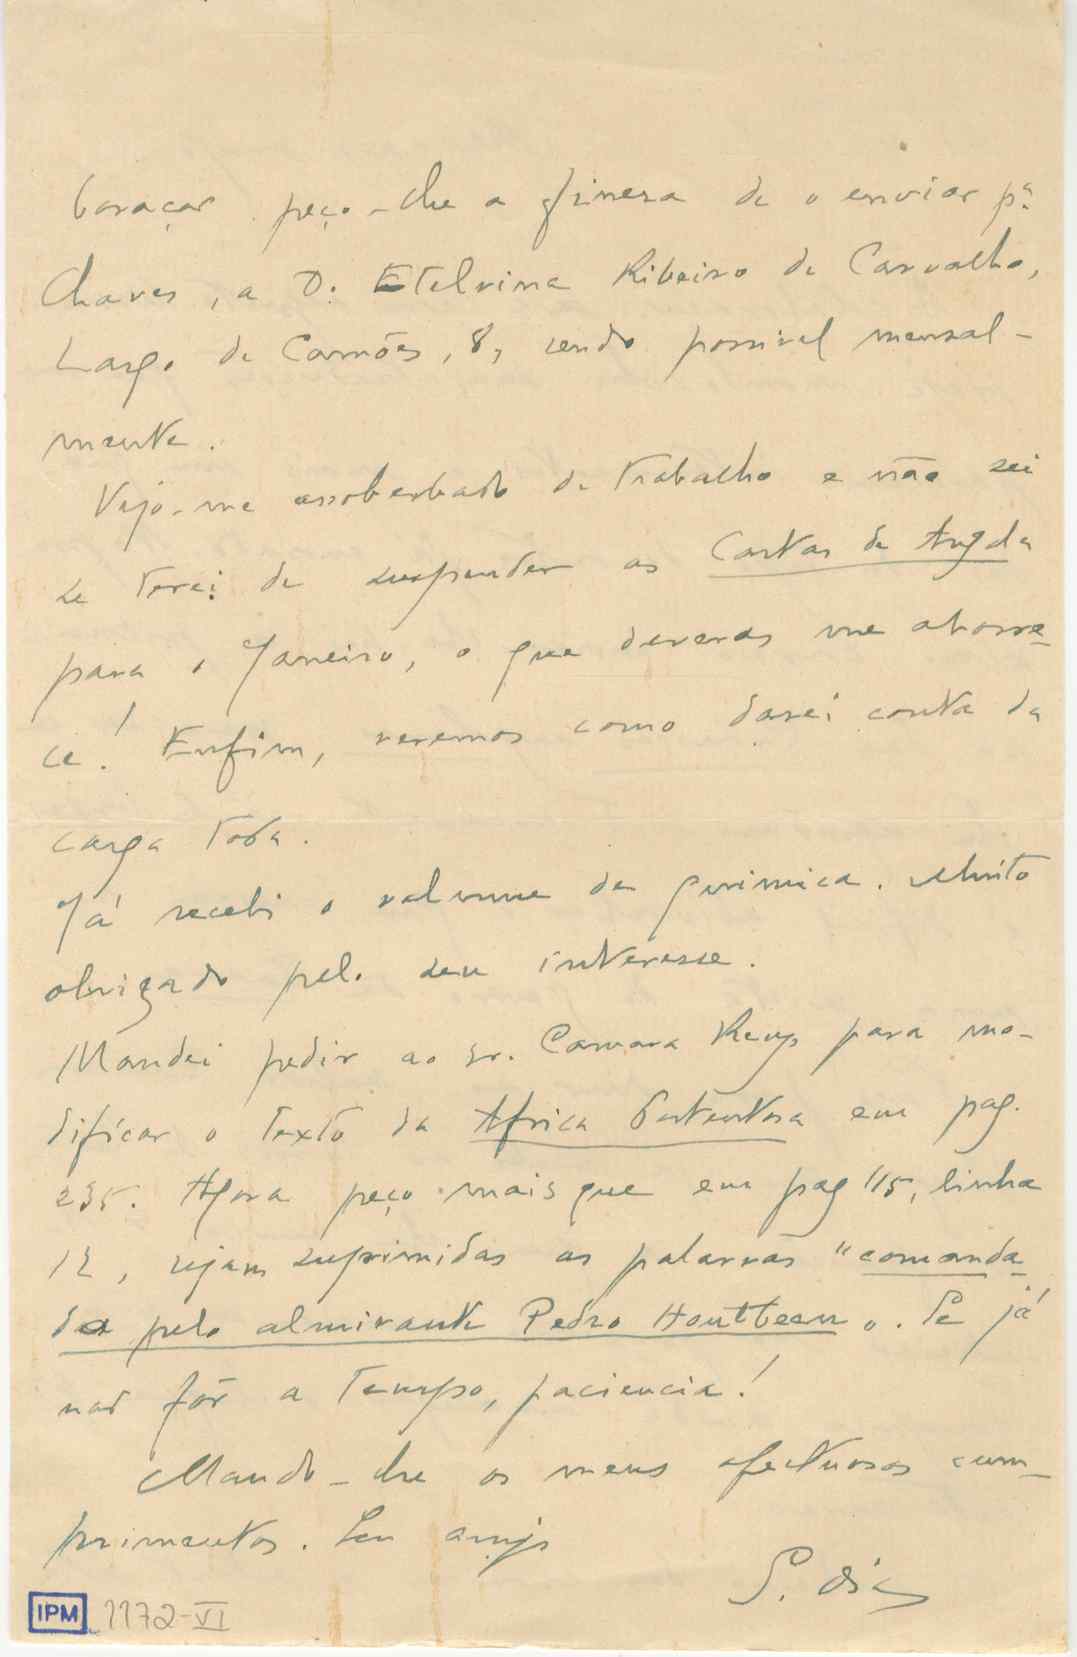 baraçar peço-lhe a fineza de o enviar pª
Chaves, a D. Etelvina Ribeiro de Carvalho,
Largo de Camões, 8, sendo possivel mensal-
mente.
Vejo-me assoberbado de trabalho e não sei
se terei de suspender as Cartas de Angola
para o Janeiro, o que deveras me aborre-
ce! Enfim, veremos como darei conta da
carga toda.
Já recebi o volume de quimica. Muito
obrigado pelo seu interesse.
Mandei pedir ao sr. Camara Reys para mo-
dificar o texto da Africa Portentosa em pag.
235. Agora peço mais que em pag 115, linha
12, sejam suprimidas as palavras "comanda
da pelo almirante Pedro Houtbeen". Se já
não fôr a tempo, paciencia!
Mando-lhe os meus afectuosos cum-
primentos. Seu amigo
G. Dias
IPM 1172-VI